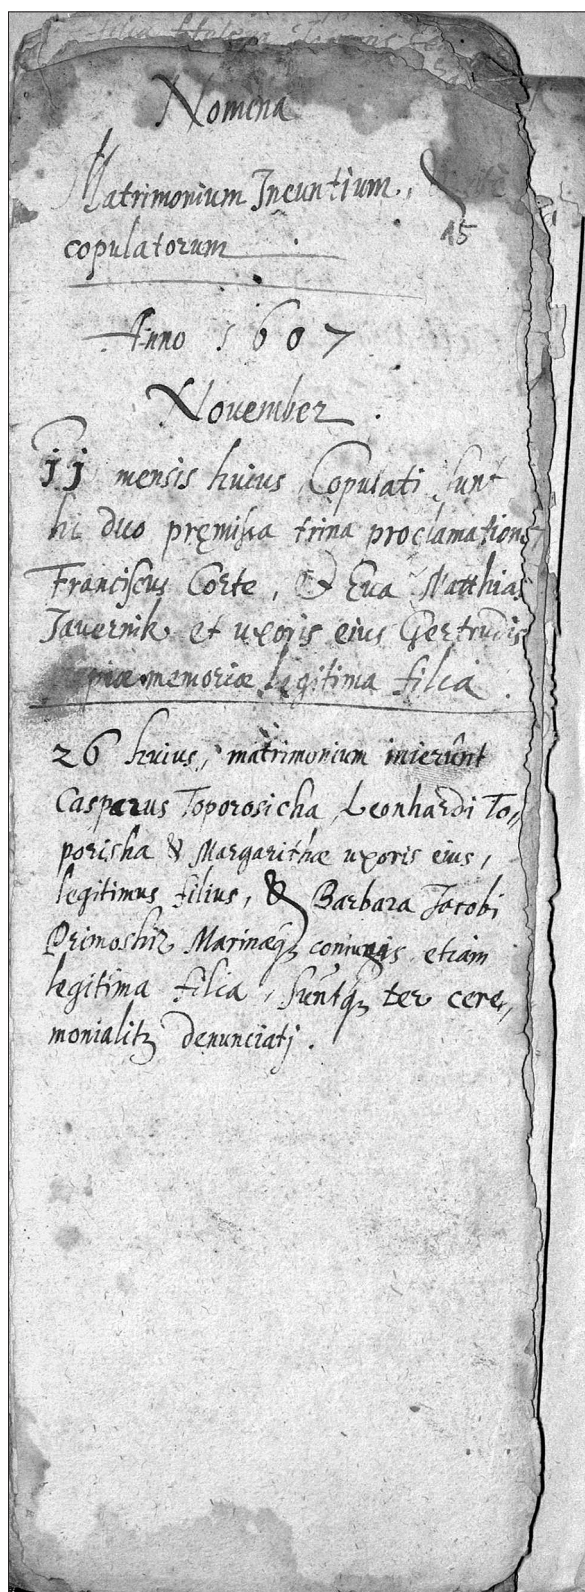 Nomina
Matrimonium Ineuntium,
copulatorum
15
Anno 1607
November
11 mensis huius Copulati sunt
hi duo pręmissa trina proclamatione,
Franciscus Corte, Et Eua Matthias
Javernik et uxoris eius Gertrudis
piæ memoriæ legitima filia.
26 huius, matrimonium inierunt
Casparus Toporosicha, Leonhardi To,,
porisha & Margarithæ uxoris eius,
legitimus filius, & Barbara Jacobi
Primoshiz Marinæq; coniungis etiam
legitima filia, suntq; ter cere,,
monialitz denunciatj.